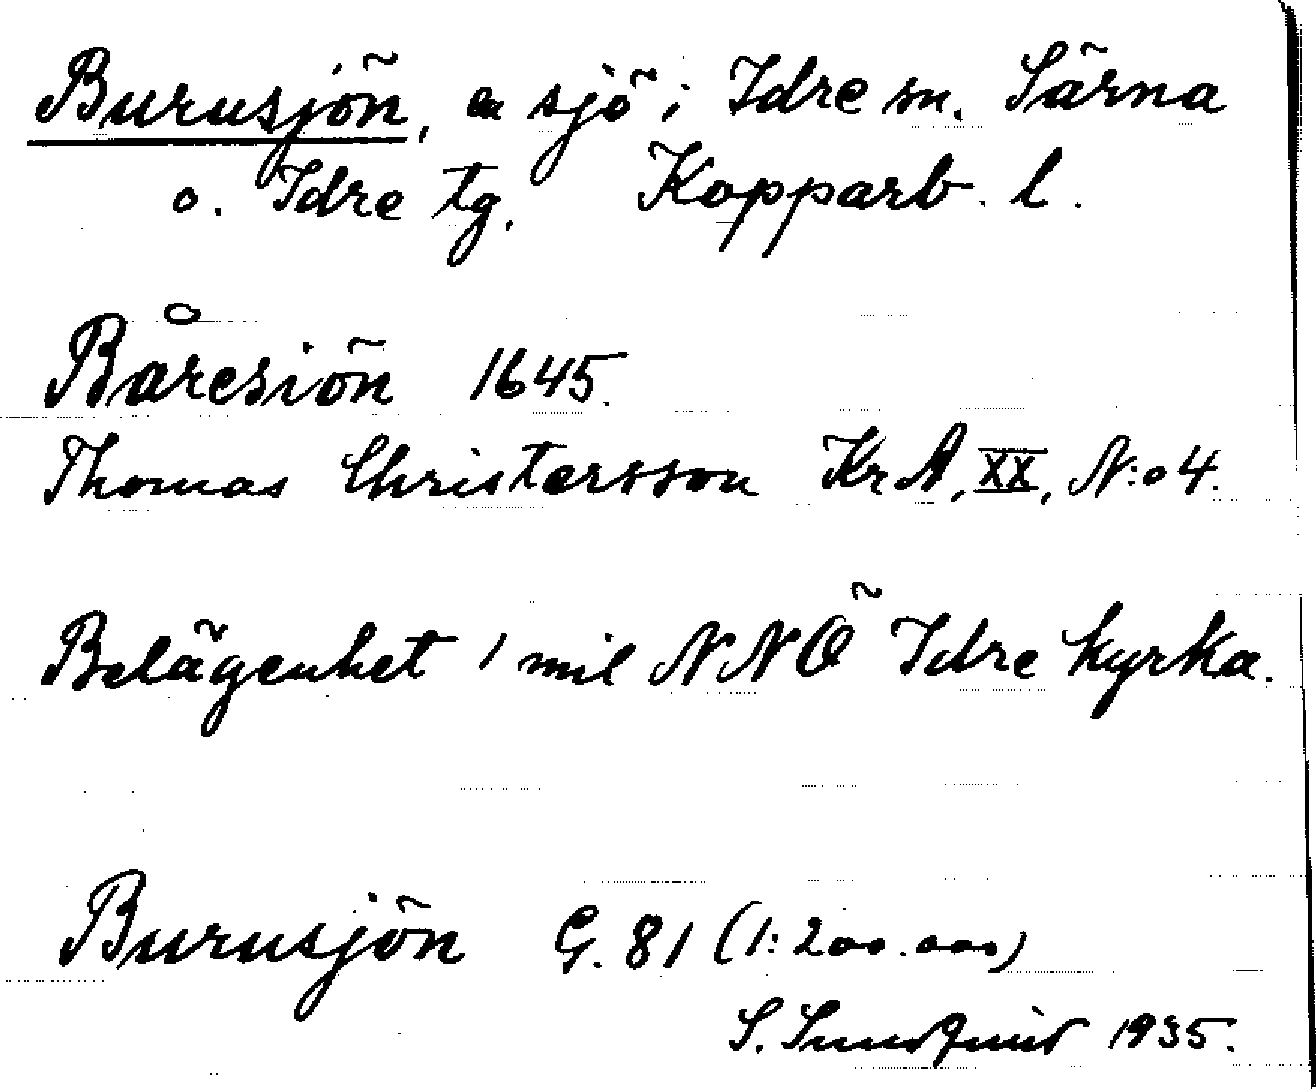 Burusjön, en sjö i Idre sn. Särna
o. Idre tg. Kopparb. l.
Båresiön 1645.
Thomas Christersson KrA, XX, N:o 4.
Belägenhet 1 mil NNÖ Idre kyrka.
Burusjön G. 81 (1:200.000)
S. Sundquist 1935.